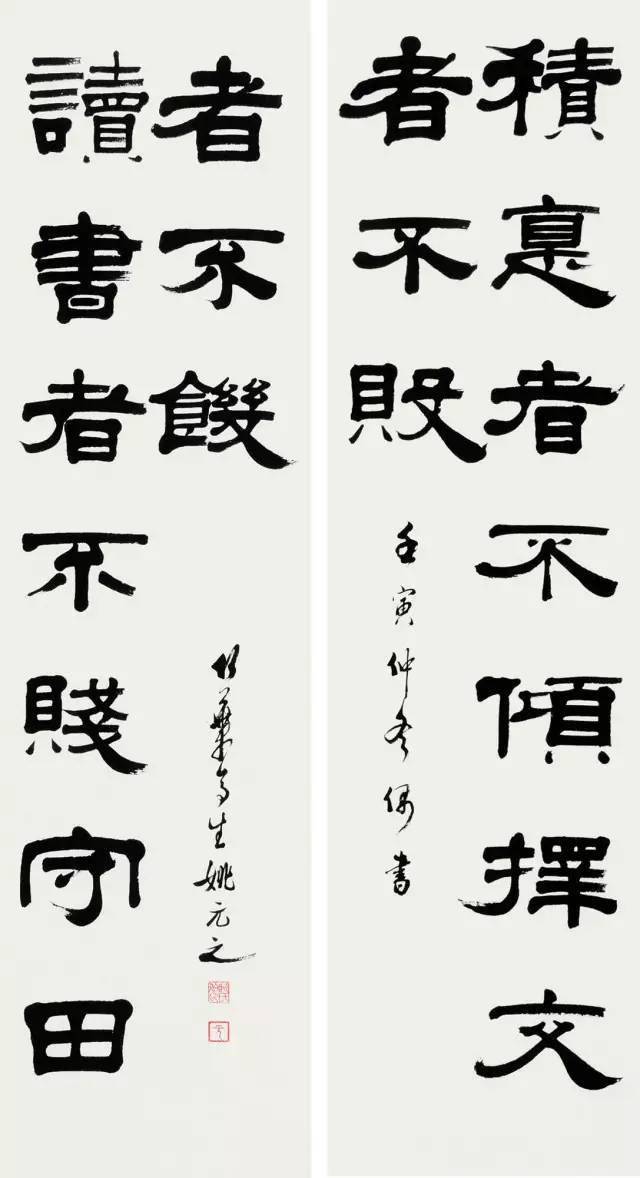 積惪者不傾擇交
者不敗
壬寅仲冬偶書
讀書者不賤守田
者不饑
竹葉亭生姚元之